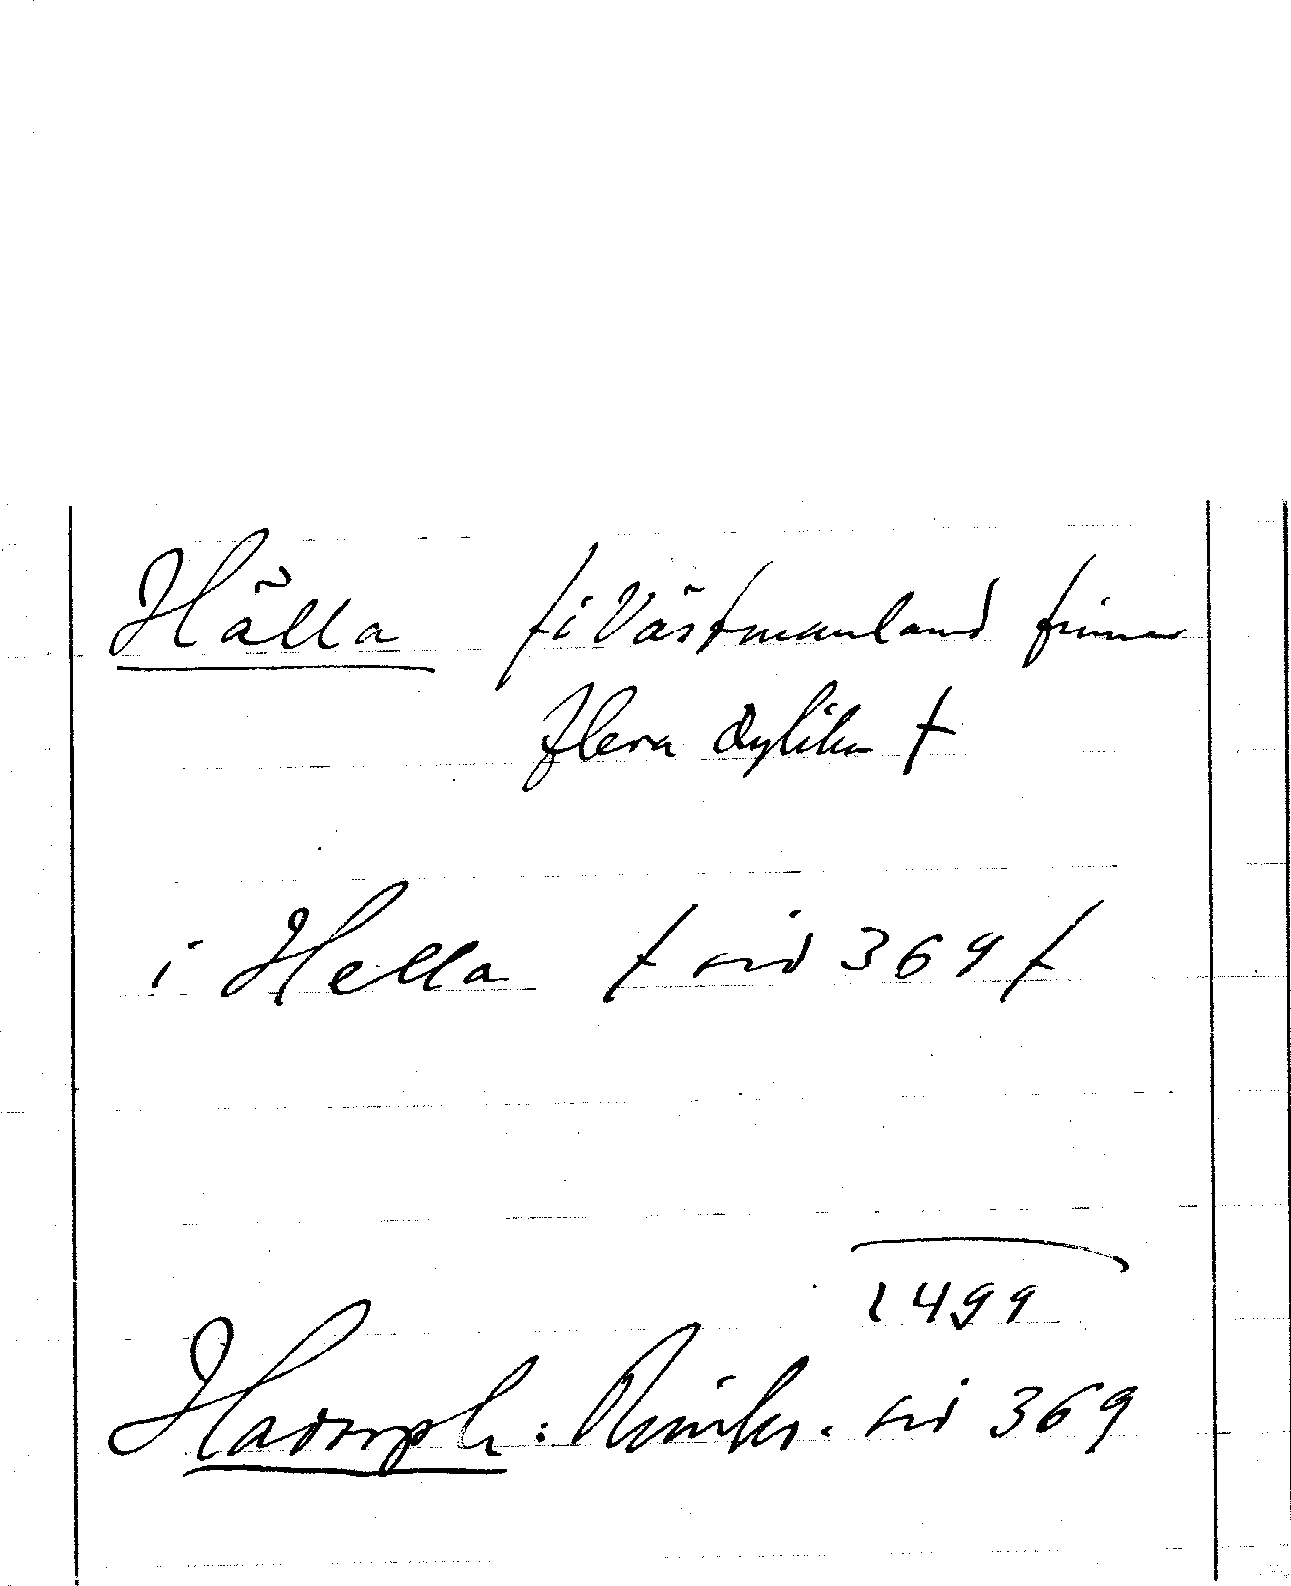 Hälla /i Västmanland finnes
flera dylika /
i Hella / sid 369 /
1499
Hadorph: Rimkr. sid 369